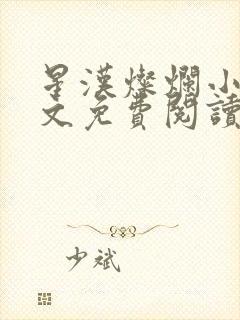 星漢燦爛小
文免費閱讀
少斌